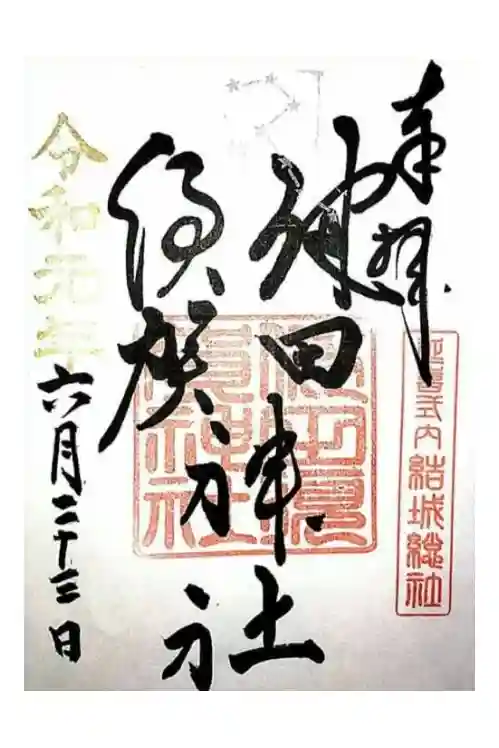 奉拝
延喜式内結城総社
健田
須賀
神社
健田須
賀神社
令和元年六月二十三日